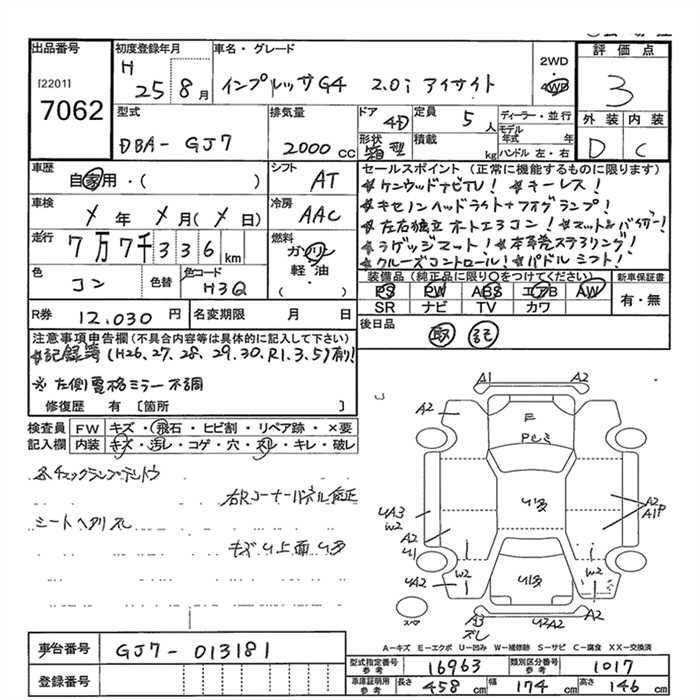 出品番号 初度登録年月 車名・グレード 2WD 評価点
[2201] H 25 8月 インプレッサG4 2.0i アイサイト 4WD 3
7062 型式 排気量 ドア 4D 定員 5人 ディーラー・並行 外装 内装
DBA-GJ7 2000cc 形状 箱型 積載 kg モデル年式 年 ハンドル 左・右 D C
車歴 自家用・( ) シフト AT セールスポイント(正常に機能するものに限ります)
☆ケンウッドナビTV! ☆キーレス!
車検 年 月( 日) 冷房 AAC ☆キセノンヘッドライト+フォグランプ!
☆左右独立オートエアコン! ☆マット&バイザー!
走行 7万7千336km 燃料 ガソリン 軽油 ・ ☆ラゲッジマット! ☆本革巻ステアリング!
☆クルーズコントロール! ☆パドルシフト!
色 コン 色替 色コード H3Q 装備品(純正品に限り〇をつけてください) 新車保証書
PS PW ABS エアB AW 有・無
SR ナビ TV カワ
R券 12,030円 名変期限 月 日 後日品 取 記
注意事項申告欄(不具合内容等は具体的に記入して下さい)
☆記録簿(H26.27.28.29.30.R1.3.5)有!
※左側電格ミラー不調
修復歴 有 [箇所 ]
検査員 FW キズ・飛石・ヒビ割・リペア跡・×要
記入欄 内装 キズ・汚レ・コゲ・穴・スレ・キレ・破レ
各チェックランプテントウ
右Rコーナーパネル修正
シートヘタリ スレ
キズU上面U多
A1 A2
A2 E
Pとミ
U多
UA3 W2
A2
U1
A2
A1P
UA2 W2 U多 W2 A2
スペア A3 スレ UA2 A2
A－キズ E－エクボ U－凹み W－補修跡 S－サビ C－腐食 XX－交換済
車台番号 GJ7-013181
型式指定番号 参考 16963 類別区分番号 参考 1017
登録番号
車庫証明用 参考 長さ 458cm 幅 174cm 高さ 146cm